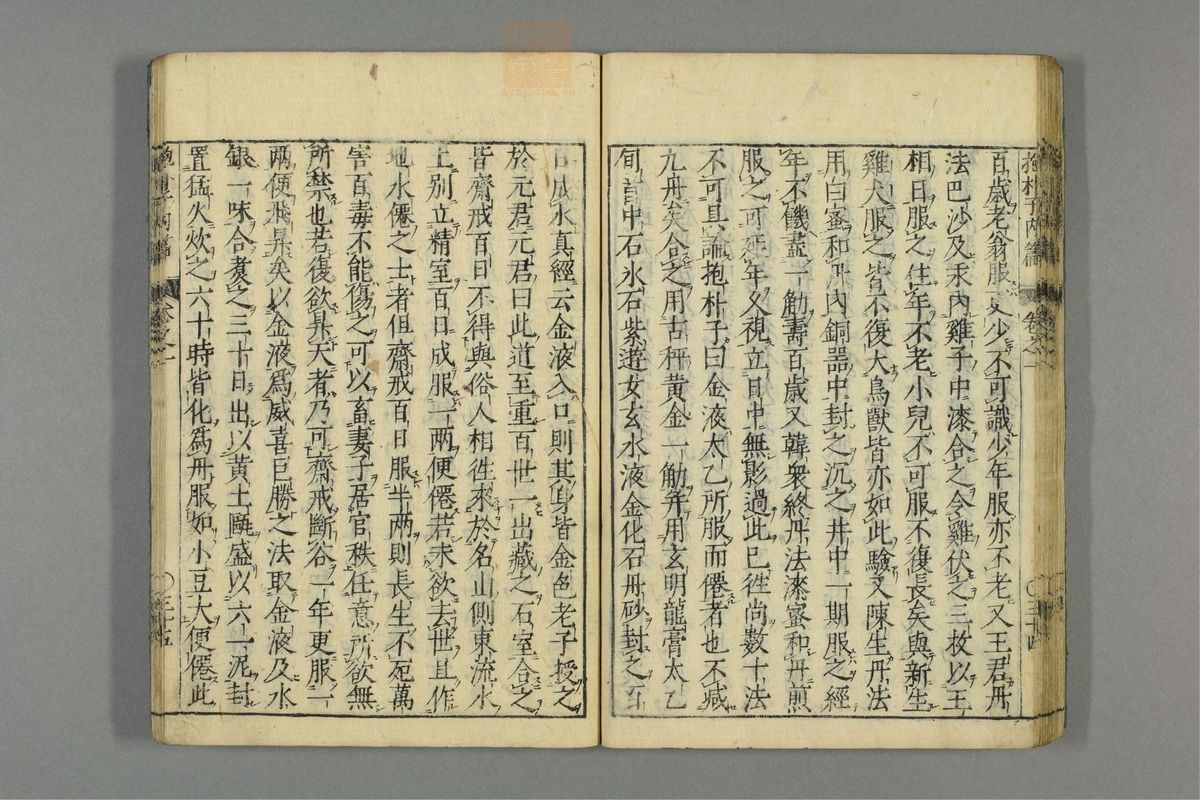 抱朴子內篇 卷之一 ○三十四
百歲老翁服更少不可識少年服亦不老又王君丹
法巴沙及汞內雞子中漆合之令雞伏之三枚以王
相日服之住年不老小兒不可服不復長矣與新生
雞犬服之皆不復大鳥獸皆亦如此驗又陳生丹法
用白蜜和丹內銅器中封之沉之井中一期服之經
年不饑盡一觔壽百歲又韓衆終丹法漆蜜和丹煎
服之可延年久視立日中無影過此已徃尚數十法
不可具論抱朴子曰金液太乙所服而僊者也不减
九丹矣合之用古秤黃金一觔并用玄明龍膏太乙
旬首中石氷石紫遊女玄水液金化石丹砂封之百
日成水真經云金液入口則其身皆金色老子授之
於元君元君曰此道至重百世一出藏之石室合之
皆齋戒百日不得與俗人相徃來於名山側東流水
上别立精室百日成服一兩便僊若未欲去世且作
地水僊之士者但齋戒百日服半兩則長生不死萬
害百毒不能傷之可以畜妻子居官秩任意所欲無
所禁也若復欲昇天者乃可齋戒斷谷一年更服一
兩便飛昇矣以金液爲威喜巨勝之法取金液及水
銀一味合煮之三十日出以黃土甌盛以六一泥封
置猛火炊之六十時皆化爲丹服如小豆大便僊此
抱朴子內篇 卷之一 ○三十五